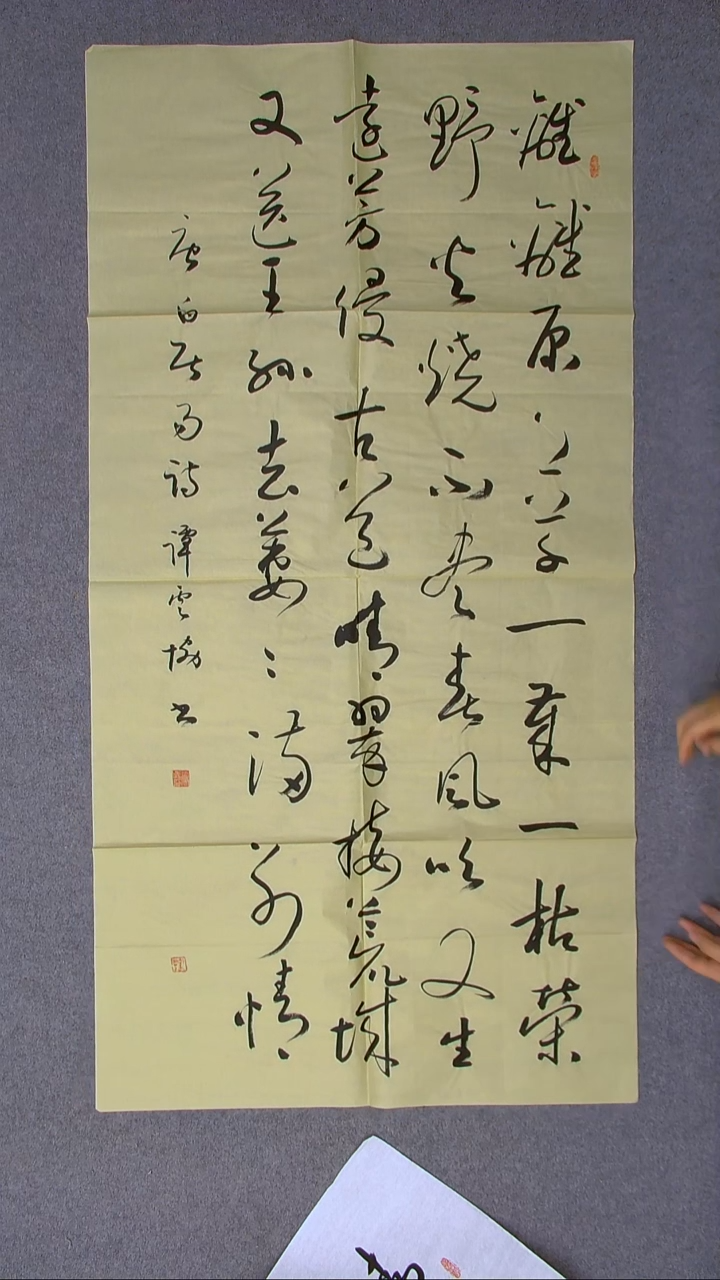 離離原上草一歲一枯榮
野火燒不盡春風吹又生
遠芳侵古道晴翠接荒城
又送王孫去萋〻滿別情
唐白居易詩譚雲協書